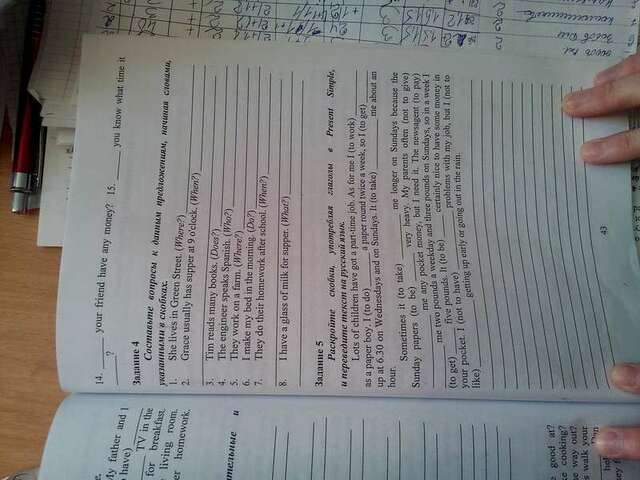 14. ______ your friend have any money? 15. ______ you know what time it
______?
Задание 4
Составьте вопросы к данным предложениям, начиная словами,
указанными в скобках.
1. She lives in Green Street. (Where?)
2. Grace usually has supper at 9 o'clock. (When?)
3. Tim reads many books. (Does?)
4. The engineer speaks Spanish. (Who?)
5. They work on a farm. (Where?)
6. I make my bed in the morning. (Do?)
7. They do their homework after school. (When?)
8. I have a glass of milk for supper. (What?)
Задание 5
Раскройте скобки, употребляя глаголы в Present Simple,
и переведите текст на русский язык.
Lots of children have got a part-time job. As for me I (to work) ______
as a paper boy. I (to do) ______ a paper round twice a week, so I (to get) ______
up at 6.30 on Wednesdays and on Sundays. It (to take) ______ me about an
hour.
Sometimes it (to take) ______ me longer on Sundays because the
Sunday papers (to be) ______ very heavy. My parents often (not to give)
______ me any pocket money, but I need it. The newsagent (to pay)
______ me two pounds a weekday and three pounds on Sundays, so in a week I
(to get) ______ five pounds. It (to be) ______ certainly nice to have some money in
your pocket. I (not to have) ______ problems with my job, but I (not to
like) ______ getting up early or going out in the rain.
43
My father and I
to have)
TV in the
for breakfast.
living room.
homework.
и
good at?
cooking?
way out?
walk your